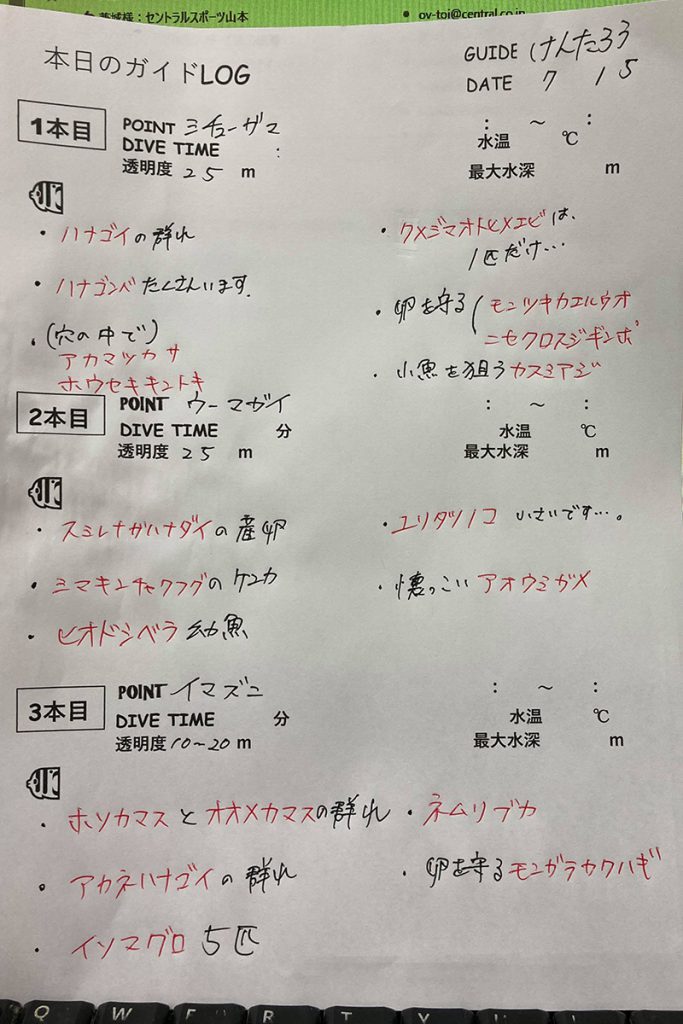 茨城様：セントラルスポーツ山本
ov-toi@central.co.jp
本日のガイドLOG
GUIDE けんたろう
DATE 7 / 15
1本目
POINT ミチューザマ
DIVE TIME :
透明度 25 m
: ～ :
水温 ℃
最大水深 m
・ハナゴイの群れ
・ハナゴンベたくさんいます.
・(穴の中で)
アカマツカサ
ホウセキキントキ
・クメジマオトヒメエビは、
1匹だけ…
・卵を守る(モンツキカエルウオ
ニセクロスジギンポ
・小魚を狙うカスミアジ
2本目
POINT ウーマガイ
DIVE TIME 分
透明度 25 m
: ～ :
水温 ℃
最大水深 m
・スミレナガハナダイの産卵
・シマキンチャクフグのケンカ
・ヒオドシベラ 幼魚
・ユリタツノコ いさいです…。
・懐っこい アオウミガメ
3本目
POINT イマズニ
DIVE TIME 分
透明度 10～20 m
: ～ :
水温 ℃
最大水深 m
・ホソカマスとオオメカマスの群れ
・アカネハナゴイの群れ
・イソマグロ 5匹
・ネムリブカ
・卵を守るモンガラカワハギ
Q W E R T Y U I